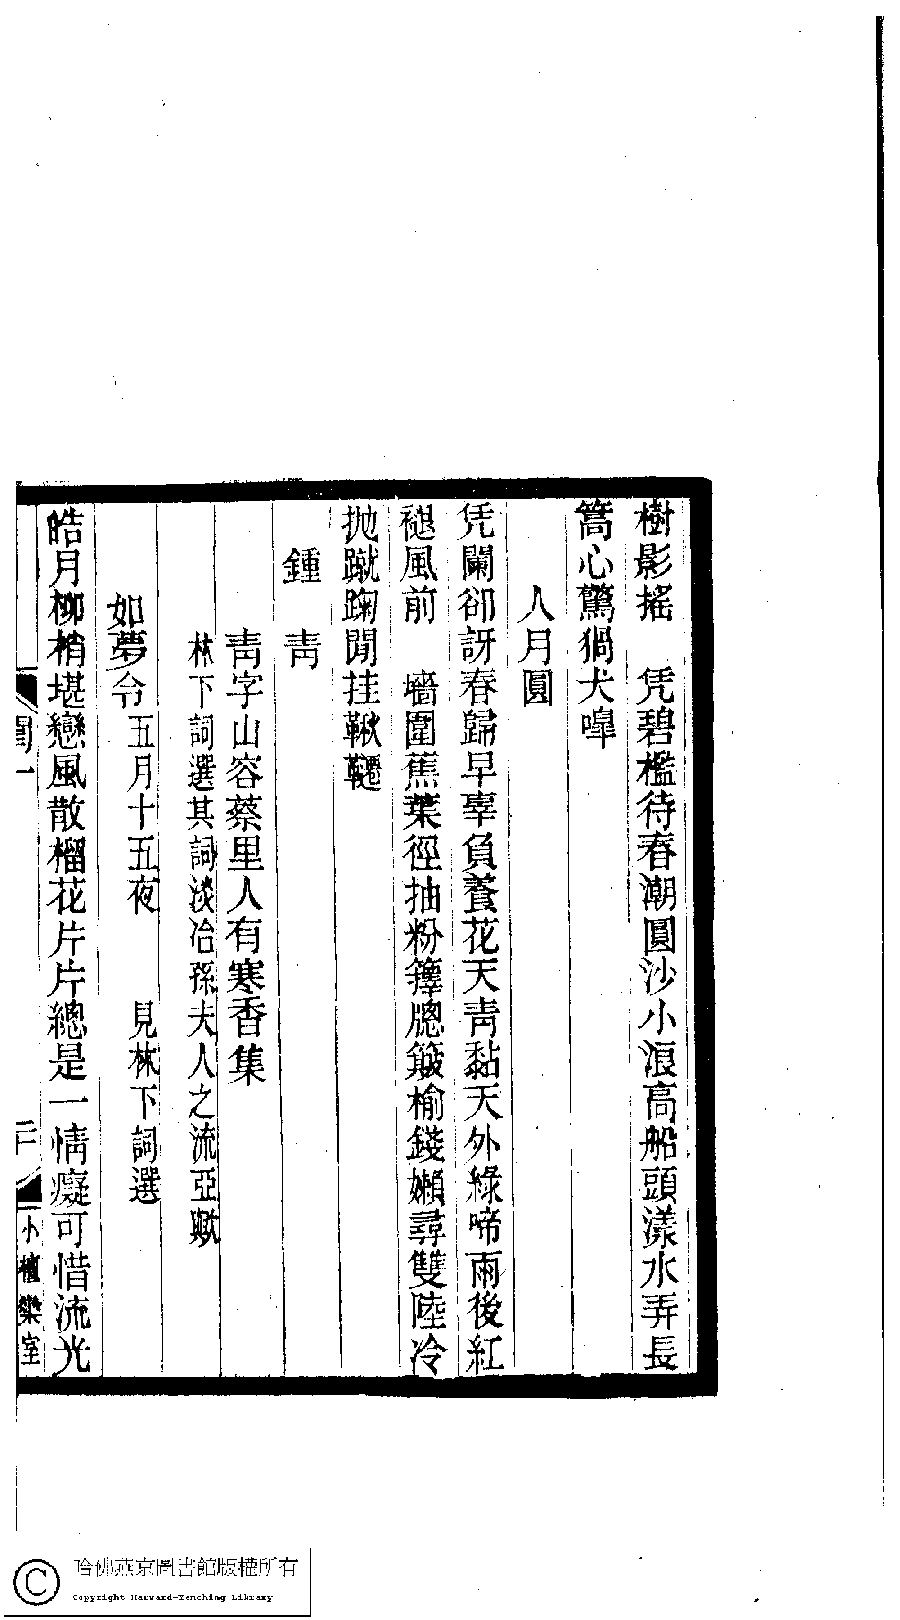 樹影搖　凭碧檻待春潮圓沙小浪高船頭漾水弄長
篙心驚猧犬嘷
人月圓
凭闌卻訝春歸早辜負養花天青黏天外綠啼雨後紅
褪風前　墻圍蕉葉徑抽粉籜牕簸榆錢嬾尋雙陸冷
拋蹴踘閒挂鞦韆
鍾　青
青字山容蔡里人有寒香集
林下詞選其詞淡冶孫夫人之流亞歟
如夢令　五月十五夜　見林下詞選
皓月柳梢堪戀風散榴花片片總是一情癡可惜流光
閨一　二　小檀欒室
哈佛燕京圖書館版權所有
Copyright Harvard-Yenching Library